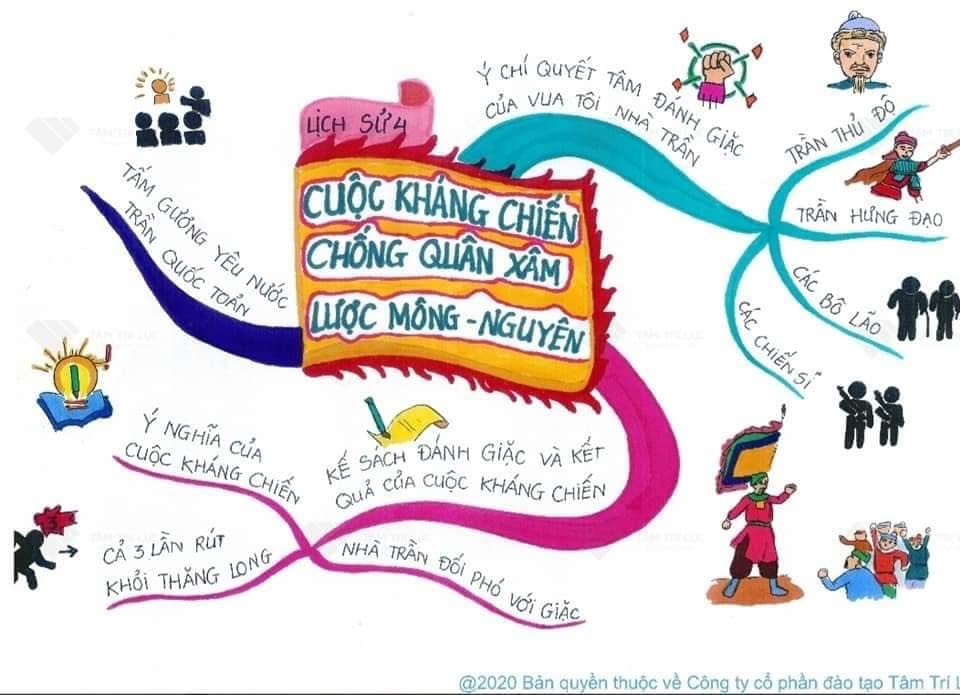 LỊCH SỬ 4
CUỘC KHÁNG CHIẾN
CHỐNG QUÂN XÂM
LƯỢC MÔNG - NGUYÊN
Ý CHÍ QUYẾT TÂM ĐÁNH GIẶC
CỦA VUA TÔI NHÀ TRẦN
TRẦN THỦ ĐỘ
TRẦN HƯNG ĐẠO
CÁC BÔ LÃO
CÁC CHIẾN SĨ
KẾ SÁCH ĐÁNH GIẶC VÀ KẾT
QUẢ CỦA CUỘC KHÁNG CHIẾN
NHÀ TRẦN ĐỐI PHÓ VỚI GIẶC
CẢ 3 LẦN RÚT
KHỎI THĂNG LONG
3
Ý NGHĨA CỦA
CUỘC KHÁNG CHIẾN
TẤM GƯƠNG YÊU NƯỚC
TRẦN QUỐC TOẢN
TÂM TRÍ LỰC
@2020 Bản quyền thuộc về Công ty cổ phần đào tạo Tâm Trí L